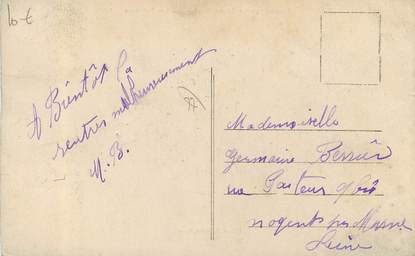 10-€
A Bientôt la
rentrée malheureusement
M. B.
Mademoiselle
Germaine
rue Pasteur
nogents sur Marne
Seine